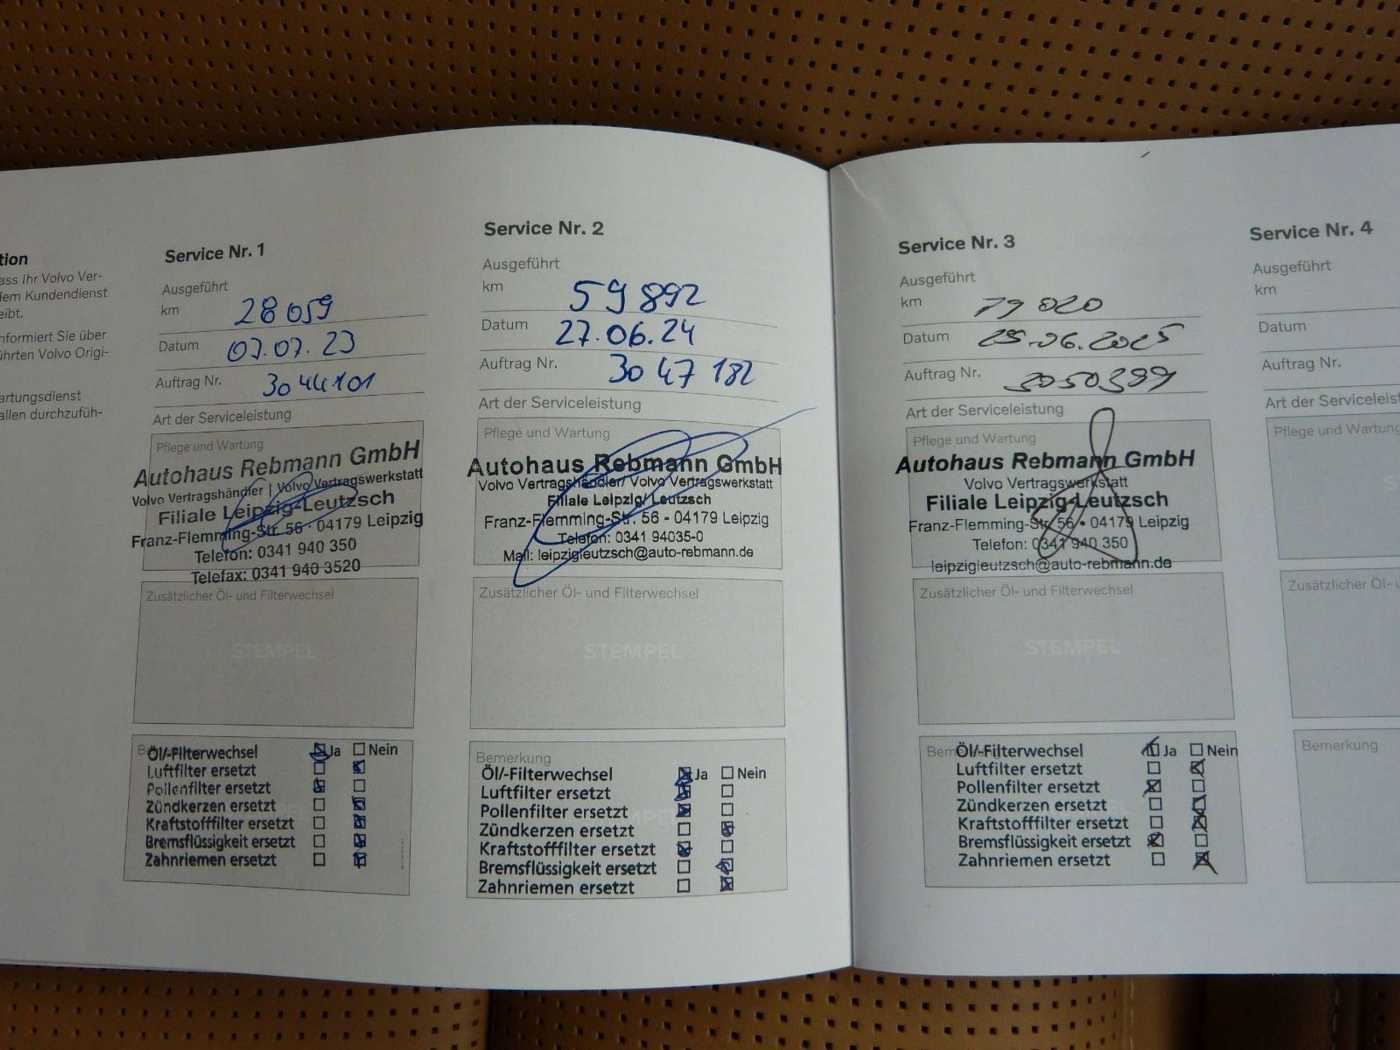 tion
ass Ihr Volvo Ver-
dem Kundendienst
eibt.
nformiert Sie über
ührten Volvo Origi-
artungsdienst
allen durchzufüh-
Service Nr. 1
Ausgeführt
km 28 059
Datum 07.07.23
Auftrag Nr. 3044101
Art der Serviceleistung
Pflege und Wartung
Autohaus Rebmann GmbH
Volvo Vertragshändler | Volvo Vertragswerkstatt
Filiale Leipzig-Leutzsch
Franz-Flemming-Str. 56 · 04179 Leipzig
Telefon: 0341 940 350
Telefax: 0341 940 3520
Zusätzlicher Öl- und Filterwechsel
STEMPEL
Öl/-Filterwechsel Ja Nein
Luftfilter ersetzt
Pollenfilter ersetzt
Zündkerzen ersetzt
Kraftstofffilter ersetzt
Bremsflüssigkeit ersetzt
Zahnriemen ersetzt
Service Nr. 2
Ausgeführt
km 59 892
Datum 27.06.24
Auftrag Nr. 3047182
Art der Serviceleistung
Pflege und Wartung
Autohaus Rebmann GmbH
Volvo Vertragshändler/ Volvo Vertragswerkstatt
Filiale Leipzig/ Leutzsch
Franz-Flemming-Str. 56 - 04179 Leipzig
Telefon: 0341 94035-0
Mail: leipzigleutzsch@auto-rebmann.de
Zusätzlicher Öl- und Filterwechsel
STEMPEL
Bemerkung
Öl/-Filterwechsel Ja Nein
Luftfilter ersetzt
Pollenfilter ersetzt
Zündkerzen ersetzt
Kraftstofffilter ersetzt
Bremsflüssigkeit ersetzt
Zahnriemen ersetzt
Service Nr. 3
Ausgeführt
km 79 020
Datum 25.06.2025
Auftrag Nr. 3050399
Art der Serviceleistung
Pflege und Wartung
Autohaus Rebmann GmbH
Volvo Vertragswerkstatt
Filiale Leipzig-Leutzsch
Franz-Flemming-Str. 56 • 04179 Leipzig
Telefon: 0341 940 350
leipzigleutzsch@auto-rebmann.de
Zusätzlicher Öl- und Filterwechsel
STEMPEL
Öl/-Filterwechsel Ja Nein
Luftfilter ersetzt
Pollenfilter ersetzt
Zündkerzen ersetzt
Kraftstofffilter ersetzt
Bremsflüssigkeit ersetzt
Zahnriemen ersetzt
Service Nr. 4
Ausgeführt
km
Datum
Auftrag Nr.
Art der Serviceleis
Pflege und Wartung
Zusätzlicher Öl- und
Bemerkung